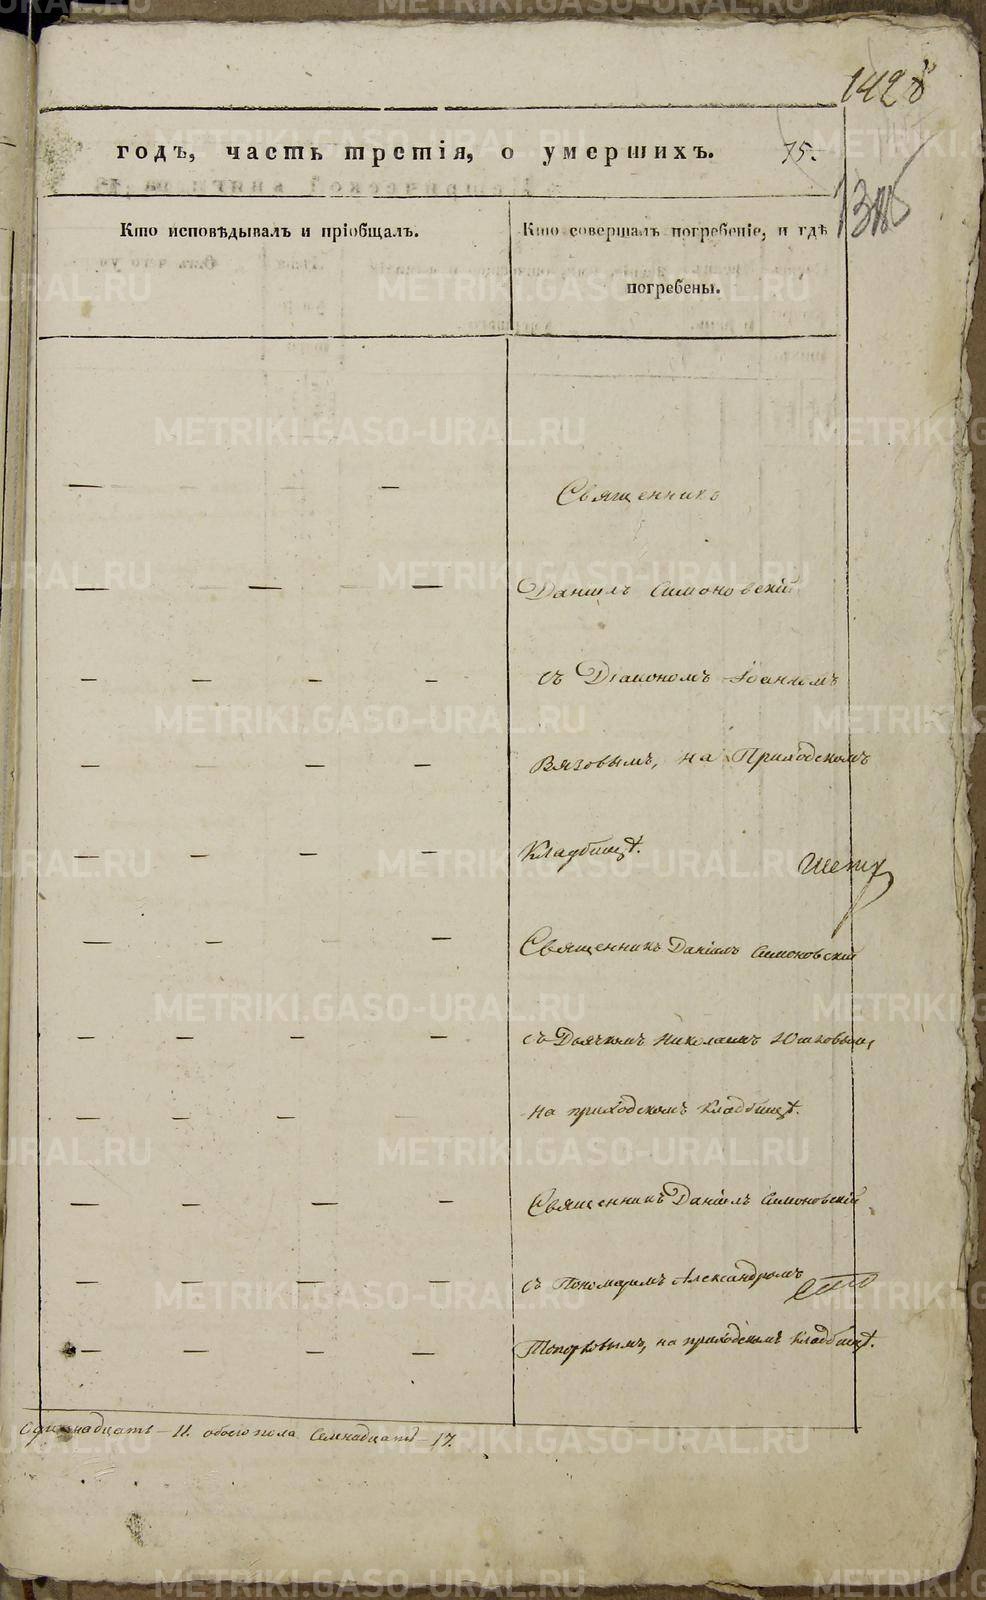 1428
годъ, часть третія, о умершихъ. 75.
Кто исповѣдывалъ и пріобщалъ.
Кто совершалъ погребеніе, и гдѣ
погребены.
Священникъ
Даніилъ Симоновскій
съ Діакономъ Іоанномъ
Вяговымъ, на Приходскомъ
Кладбищѣ.
Священникъ Даніилъ Симоновскій
съ Дьячкомъ Николаемъ Юшковым,
на приходскомъ кладбищѣ.
Священникъ Даніилъ Симоновскій
съ Пономаремъ Александромъ
Топорковымъ, на приходскомъ кладбищѣ.
Одиннадцать – 11. обоего пола Семнадцать – 17.
METRIKI.GASO-URAL.RU